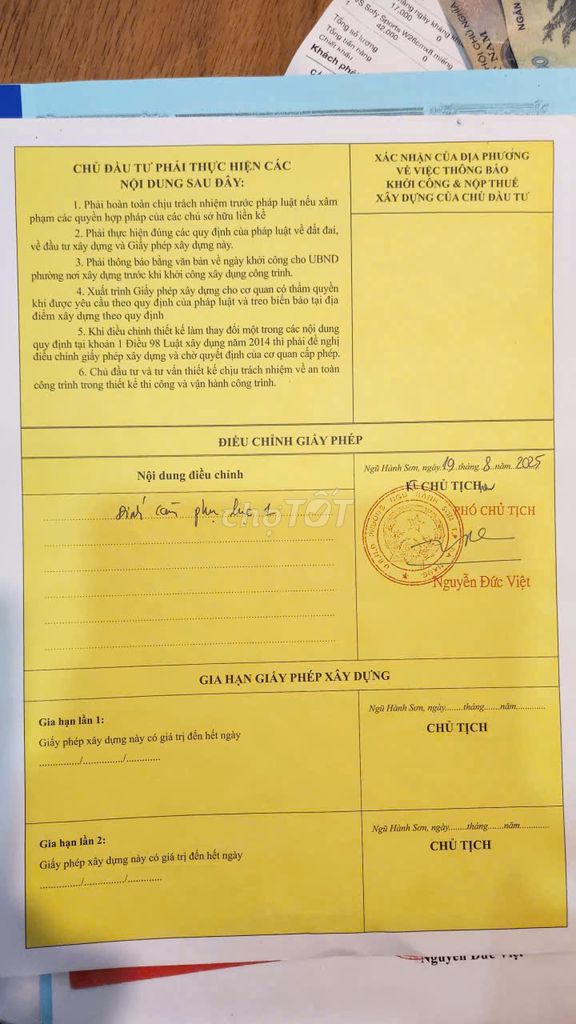 háng ngày kháng kh
17,000
0
VS Sofy Sports W26cmx8 miếng
42,000
0
Tổng số lượng
Tổng tiền hàng
Chiết khấu
Khách phải
HỘI CHỦ NGHĨA
NAM
NGÂN
CHỦ ĐẦU TƯ PHẢI THỰC HIỆN CÁC
NỘI DUNG SAU ĐÂY:
1. Phải hoàn toàn chịu trách nhiệm trước pháp luật nếu xâm
phạm các quyền hợp pháp của các chủ sở hữu liền kề
2. Phải thực hiện đúng các quy định của pháp luật về đất đai,
về đầu tư xây dựng và Giấy phép xây dựng này.
3. Phải thông báo bằng văn bản về ngày khởi công cho UBND
phường nơi xây dựng trước khi khởi công xây dựng công trình.
4. Xuất trình Giấy phép xây dựng cho cơ quan có thẩm quyền
khi được yêu cầu theo quy định của pháp luật và treo biển báo tại địa
điểm xây dựng theo quy định
5. Khi điều chỉnh thiết kế làm thay đổi một trong các nội dung
quy định tại khoản 1 Điều 98 Luật xây dựng năm 2014 thì phải đề nghị
điều chỉnh giấy phép xây dựng và chờ quyết định của cơ quan cấp phép.
6. Chủ đầu tư và tư vấn thiết kế chịu trách nhiệm về an toàn
công trình trong thiết kế thi công và vận hành công trình.
XÁC NHẬN CỦA ĐỊA PHƯƠNG
VỀ VIỆC THÔNG BÁO
KHỞI CÔNG & NỘP THUẾ
XÂY DỰNG CỦA CHỦ ĐẦU TƯ
ĐIỀU CHỈNH GIẤY PHÉP
Nội dung điều chỉnh
Đính kèm phụ lục 1
Ngũ Hành Sơn, ngày 19 tháng 8 năm 2025
KT CHỦ TỊCH
PHÓ CHỦ TỊCH
Nguyễn Đức Việt
chợTỐT
GIA HẠN GIẤY PHÉP XÂY DỰNG
Gia hạn lần 1:
Giấy phép xây dựng này có giá trị đến hết ngày
............/............../............
Ngũ Hành Sơn, ngày........tháng.......năm.............
CHỦ TỊCH
Gia hạn lần 2:
Giấy phép xây dựng này có giá trị đến hết ngày
............/............../............
Ngũ Hành Sơn, ngày........tháng.......năm.............
CHỦ TỊCH
Nguyễn Đức Việt